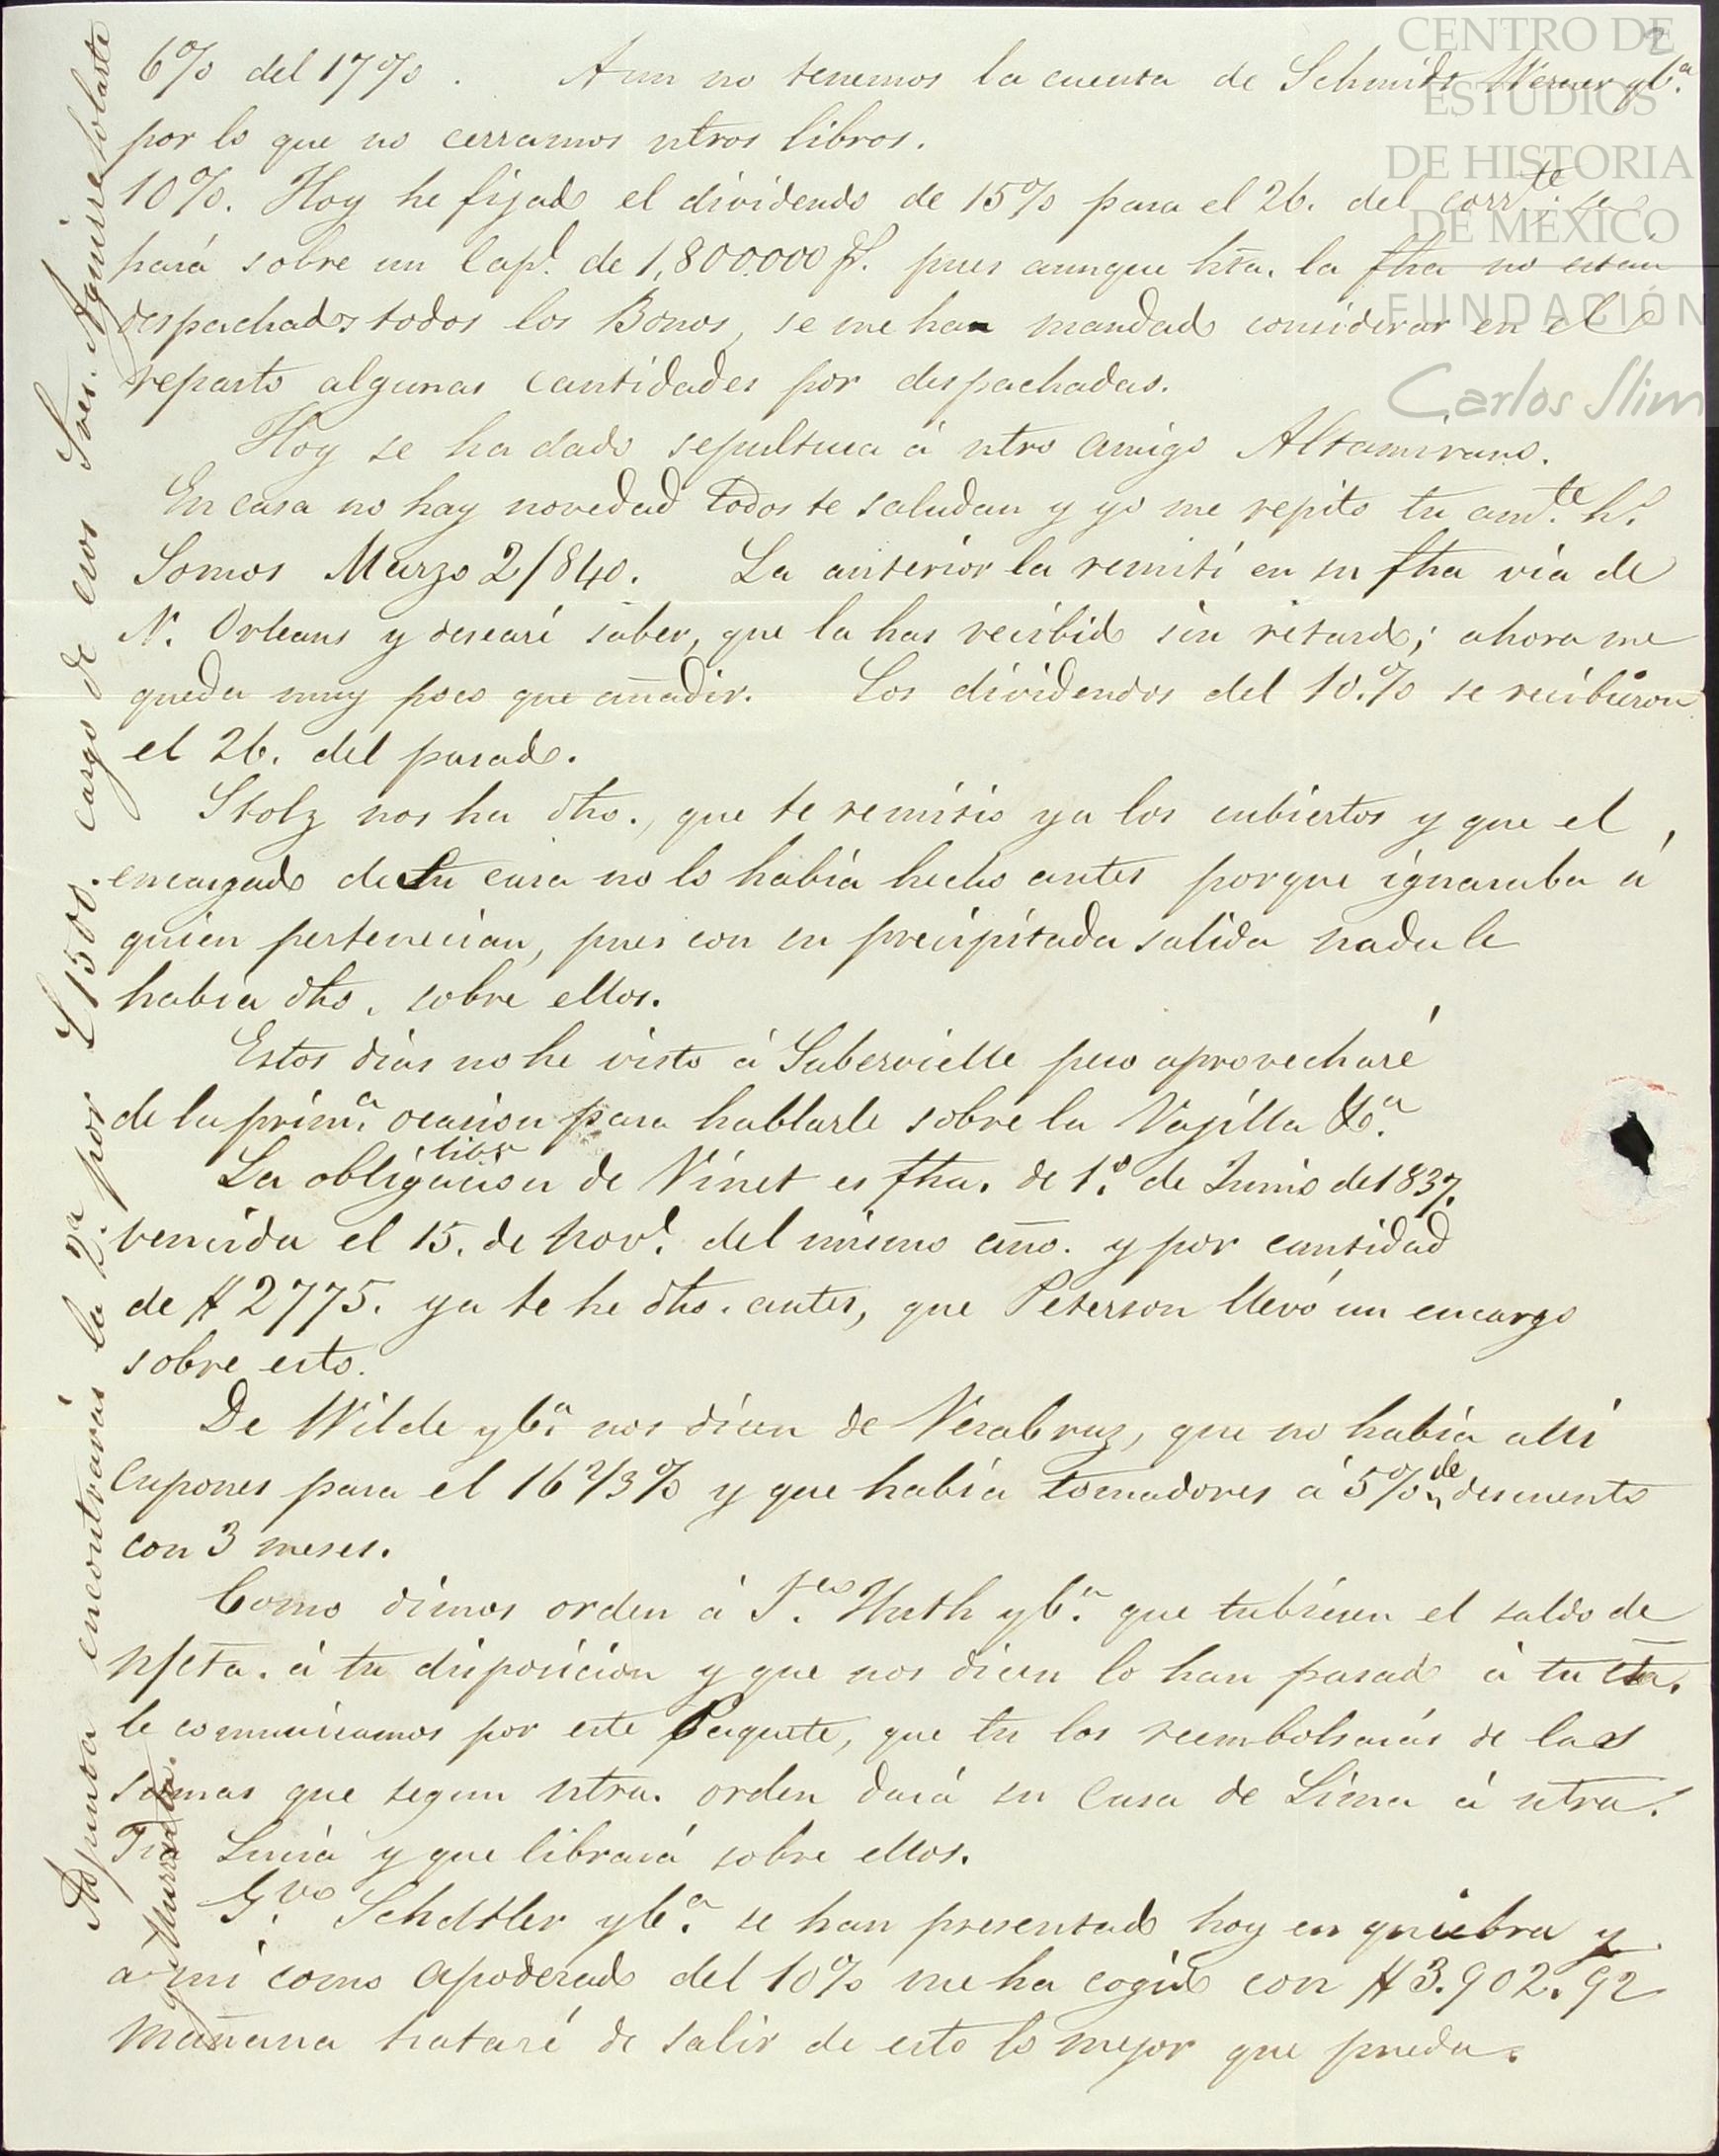 6% del 17%. Aun no tenemos la cuenta de Schmidt Werner y Cª.
por lo que no cerramos ntros libros.
10%. Hoy he fijado el dividendo de 15% para el 26. del corrte. se
hará sobre un Capl. de 1,800.000 ps. pues aunque hta. la fha no estan
despachados todos los Bonos, se me han mandado considerar en el
reparto algunas cantidades por despachadas.
Hoy se ha dado sepultura á ntro amigo Altamirano.
En casa no hay novedad todos te saludan y yo me repito tu amte. ho.
Somos Marzo 2/840. La anterior la remití en su fha via de
N. Orleans y desearé saber, que la has recibido sin retardo; ahora me
queda muy poco que añadir. Los dividendos del 10.% se recibieron
el 26. del pasado.
Stolz nos ha dho., que te remitió ya los cubiertos y que el
encargado de su casa no lo había hecho antes porque ignoraba á
quien pertenecian, pues con su precipitada salida nada le
habia dho. sobre ellos.
Estos dias no he visto á Subervielle pero aprovecharé
de la primª. ocasion para hablarle sobre la Vajilla &ª.
La obligacion de Vinet es fha. de 1º. de Junio de 1837.
vencida el 15. de Novl. del mismo año. y por cantidad
de $2775. ya te he dho. antes, que Peterson llevó un encargo
sobre esto.
De Wilde y Cª. nos dicen de VeraCruz, que no había allí
Cupones para el 16 2/3% y que había tomadores á 5% de descuento
con 3 meses.
Como dimos orden á Fco. Huth y Cª. que tubiesen el saldo de
n/cta. á tu disposicion y que nos dicen lo han pasado á tu cta.
le comunicamos por este Paquete, que tu los reembolsarás de las
sumas que segun ntra. orden dará su Casa de Lima á ntra.
Tia Luisa y que librará sobre ellos.
Gvo. Schdtler y Cª. se han presentado hoy en quiebra y
a mi como apoderado del 10% me ha cogido con $3.902.92
mañana trataré de salir de esto lo mejor que pueda.
Adjunta encontrarás la 2ª. por £1500. cargo de esos Sres. Aguirre Solarte
y Murrieta.
2
CENTRO DE
ESTUDIOS
DE HISTORIA
DE MÉXICO
FUNDACIÓN
Carlos Slim